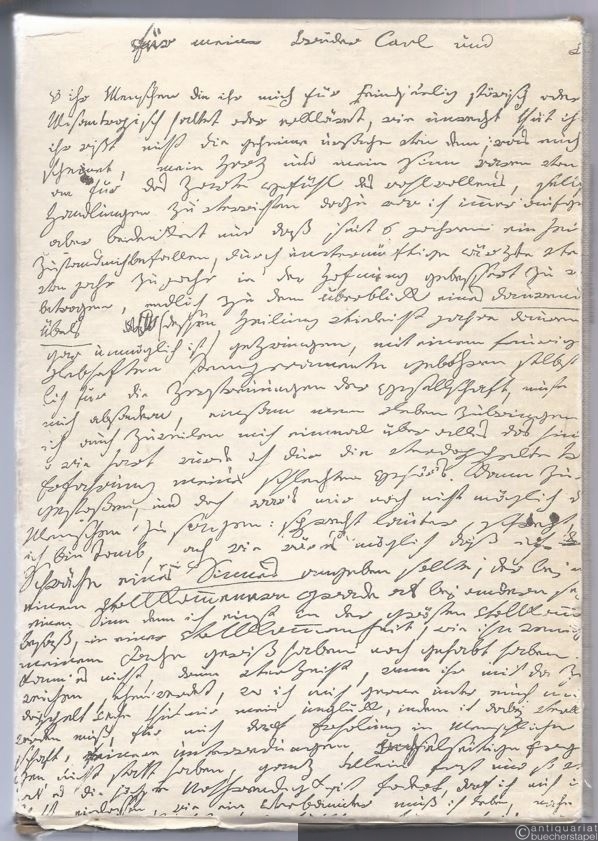 für meine Brüder Carl und
O ihr Menschen die ihr mich für Feindseelig störisch oder
Misantropisch haltet oder erkläret, wie unrecht thut ih
ihr wißt nicht die geheime urßache von dem, was euch
scheinet, mein Herz und mein Sinn waren von
an für das Zarte gefühl des wohlwollens,
Handlungen zu verrichten dazu war ich immer aufge
aber bedenket nur daß seit 6 jahren ein hei
Zustand mich befallen, durch unvernünftige ärzte ve
von jahr zu jahr in der Hofnung gebessert zu
betrogen, endlich zu dem überblick eines daurend
Übels dessen Heilung vieleicht jahre dauren
gar unmöglich ist, gezwungen, mit einem feurig
Lebhaften Temperamente gebohren selbst
lich für die Zerstreuungen der Gesellschaft, muste
mich absondern, einsam mein Leben zubringen
ich auch zuweilen mich einmal über alles das hin
o wie hart wurde ich dur die verdoppelte t
Erfahrung meines schlechten Gehör's Dann zu
gestoßen, und doch war's mir noch nicht möglich d
Menschen zu sagen: sprecht lauter, schreyt,
ich bin taub, ach wie wär es möglich daß ich
Schwäche eines Sinnes angeben sollte; der bej m
einem Vollkommenern Grade als bej andern se
einen Sinn den ich einst in der grösten Vollkomm
besaß, in einer Vollkommenheit, wie ihn wenig
meinem Fache gewiß haben noch gehabt haben
kann es nicht, drum verzeiht, wenn ihr mich da Z
weichen sehen werdet, wo ich mich gerne unter euch mi
doppelt Wehe thut mir mein unglück, indem ich dabej verk
werden muß, für mich darf Erholung in Menschlicher
schaft, feinere unterredungen, Wechselseitige Ergi
gen nicht statt haben, ganz allein fast nur so v
als es die höchste Nothwendigkeit fodert, darf ich mich in
einlassen, wie ein Verbannter muß ich leben, nahe
antiquariat
buecherstapel